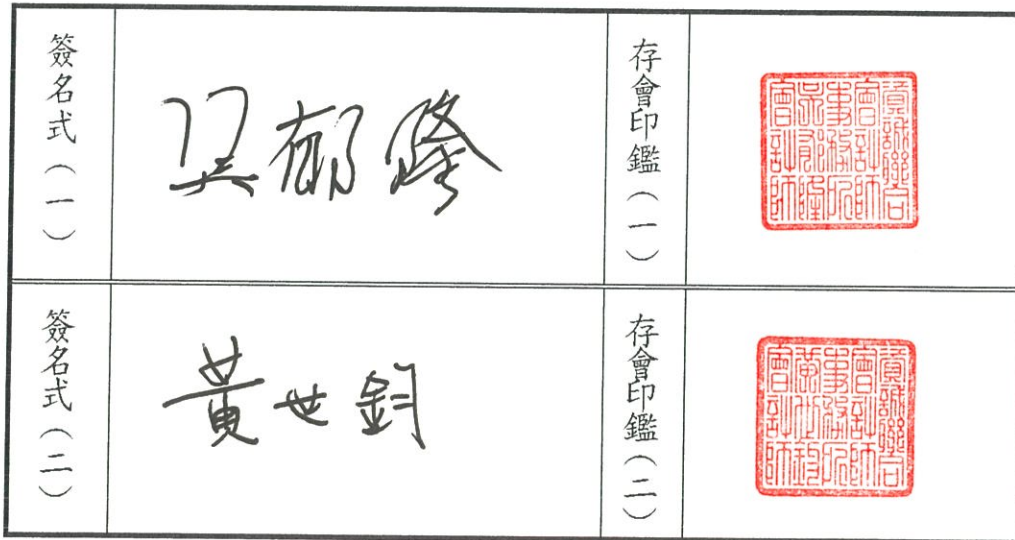 簽名式（一）
吳郁隆
存會印鑑（一）
資誠聯合
會計師
事務所
吳郁隆
會計師
簽名式（二）
黃世鈞
存會印鑑（二）
資誠聯合
會計師
事務所
黃世鈞
會計師